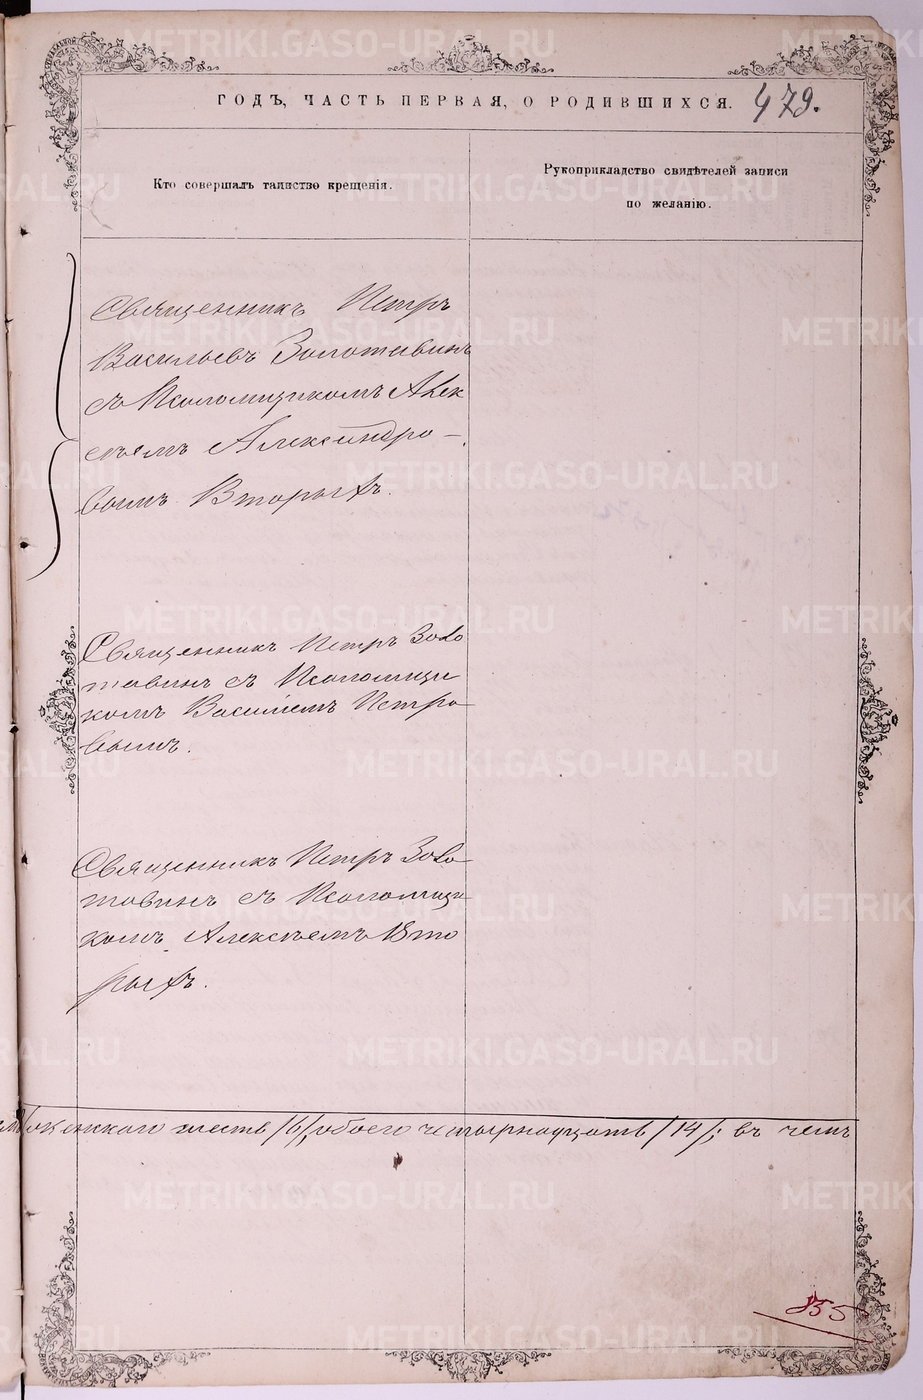 ГОДЪ, ЧАСТЬ ПЕРВАЯ, О РОДИВШИХСЯ. 479.
Кто совершалъ таинство крещенія.
Рукоприкладство свидѣтелей записи
по желанію.
Священникъ Петръ
Васильевъ Золотавинъ
съ Псаломщикомъ Алек
сѣемъ Александро-
вымъ Вторыхъ.
Священникъ Петръ Золо
тавинъ съ Псаломщи
комъ Василіемъ Петро
вымъ.
Священникъ Петръ Золо
тавинъ съ Псаломщи
комъ Алексѣемъ Вто
рыхъ.
женскаго шесть /6/, обоего четырнадцать /14/; въ чемъ
METRIKI.GASO-URAL.RU